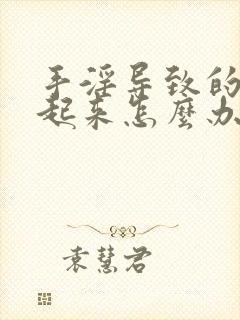 手淫导致的
起来怎麽办
袁慧君